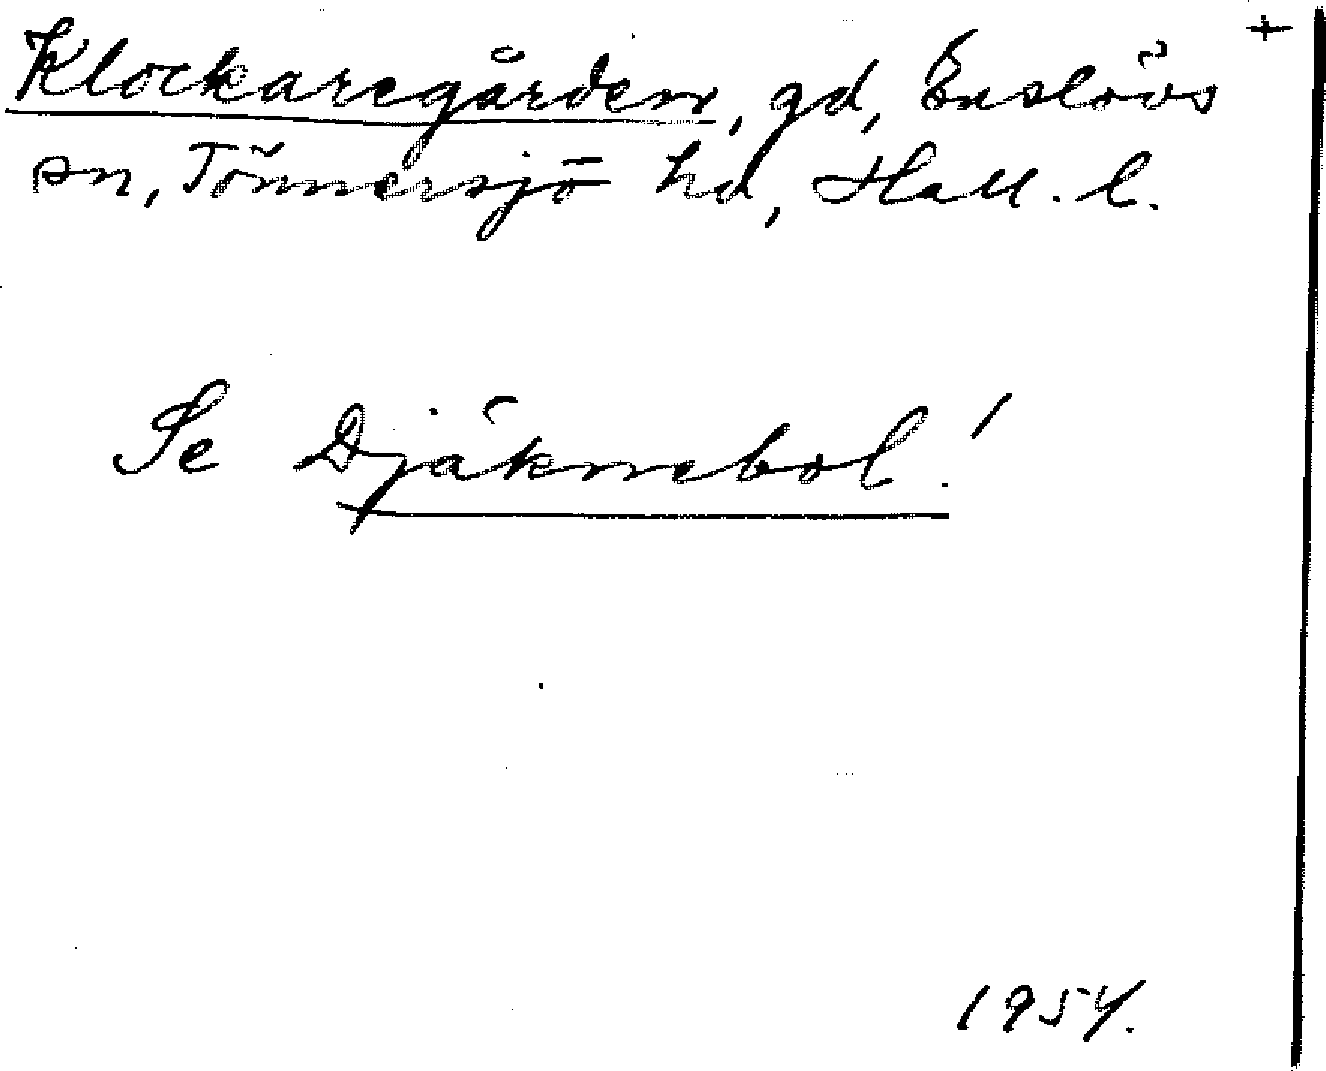 Klockaregården, gd, Enslövs +
sn, Tönnersjö hd, Hall. l.
Se Djäknebol!
1954.